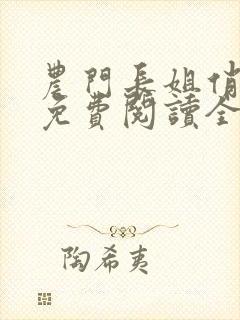 農門長姐俏
免費閱讀全
陶希夷